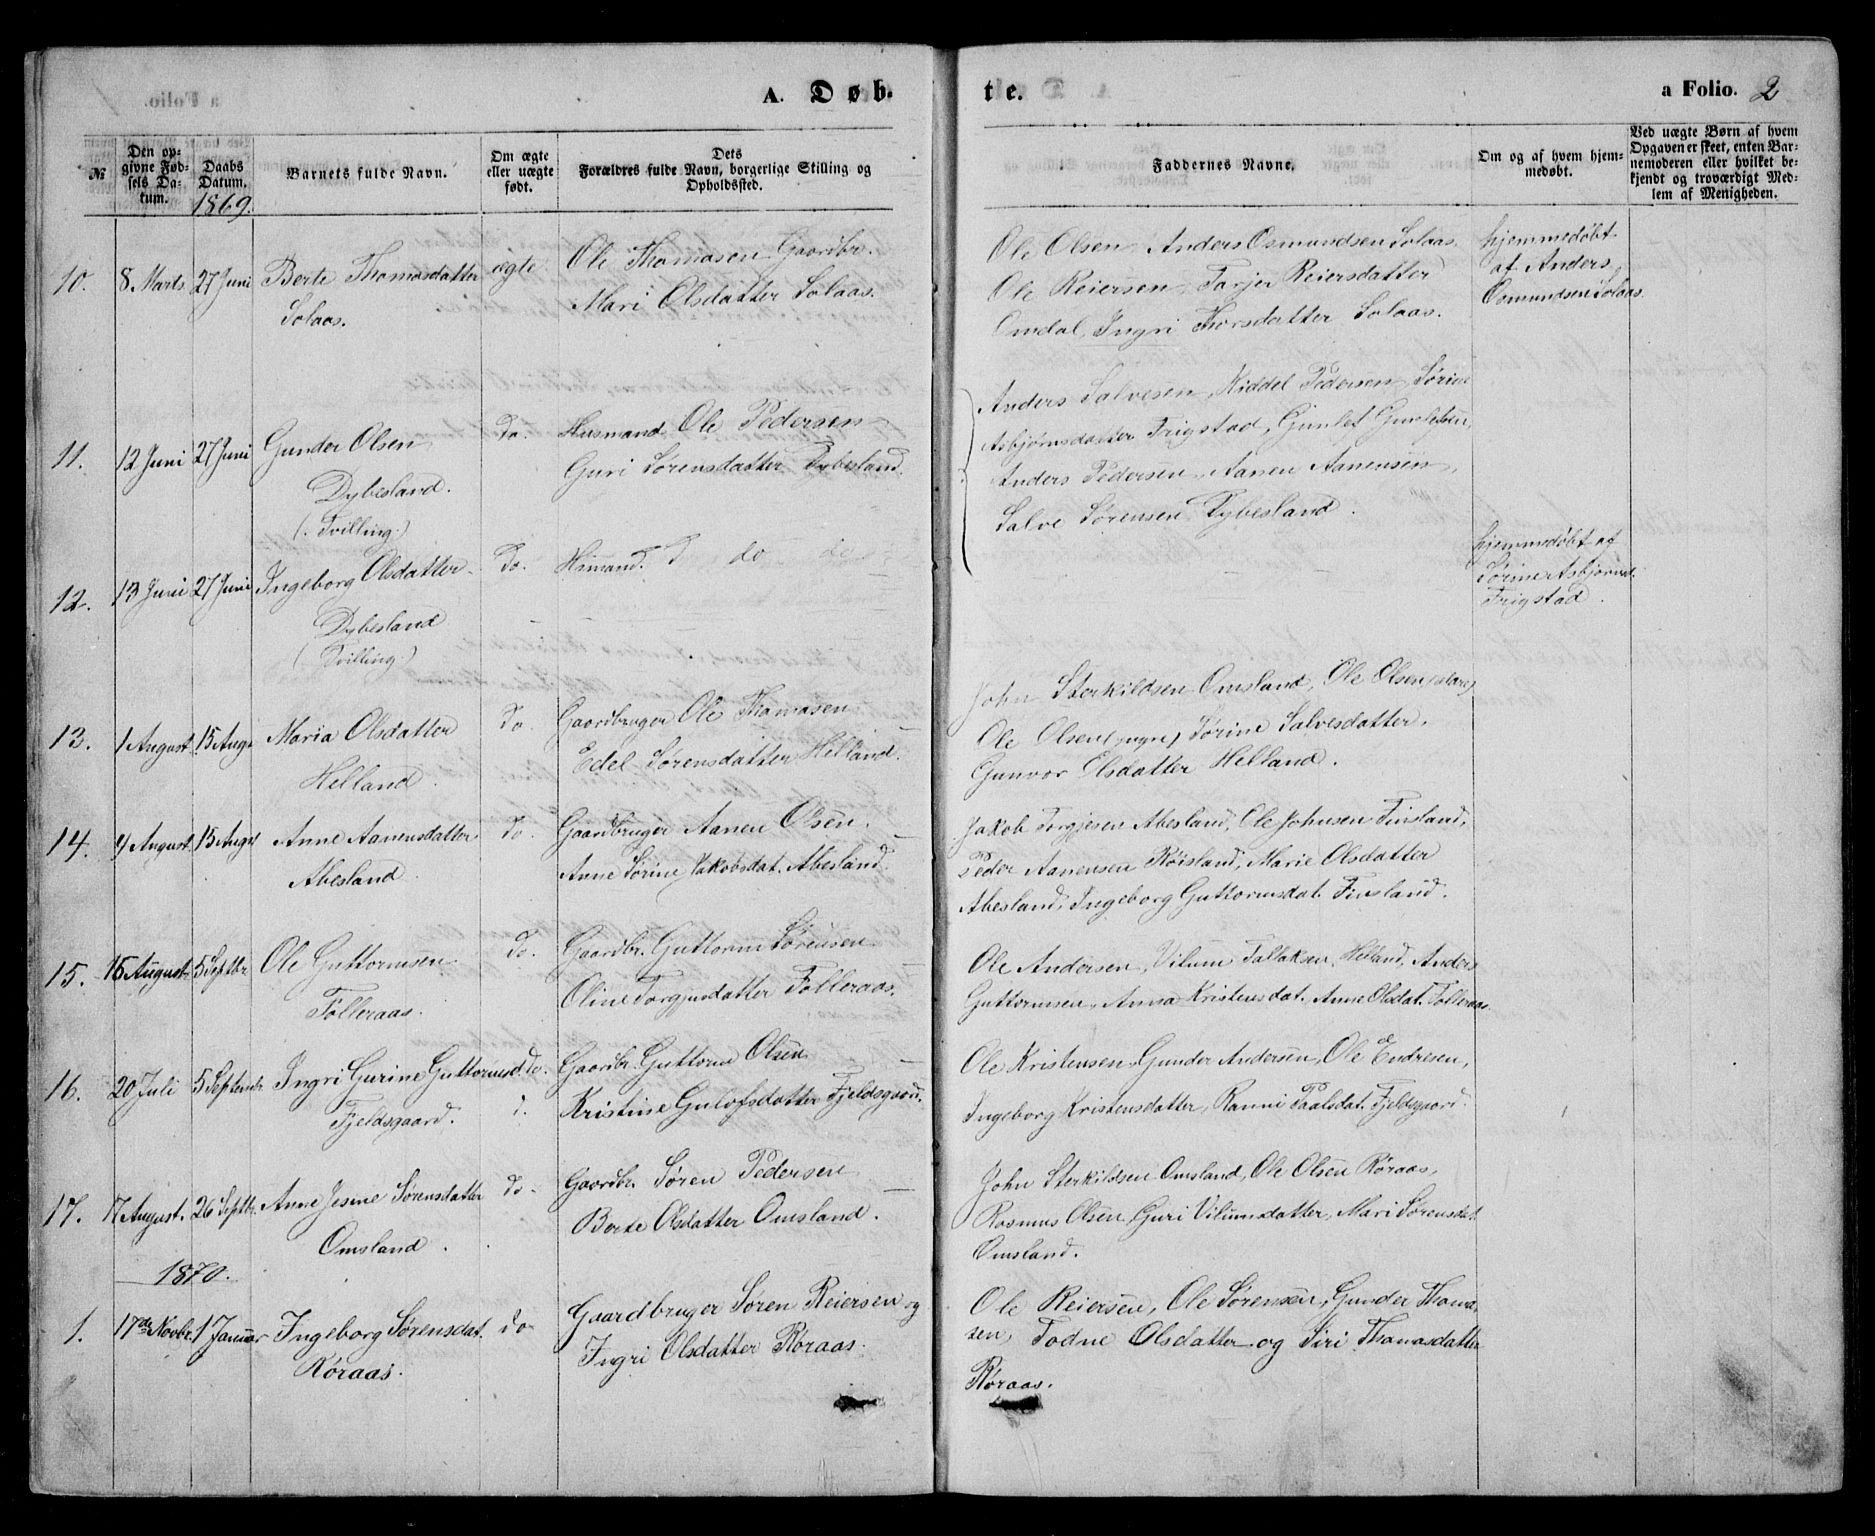 A. Døb-
te.
a Folio. 2
№
Den op-
givne Fød-
sels Da-
tum.
Daabs
Datum.
1869.
Barnets fulde Navn.
Om ægte
eller uægte
født.
Dets
Forældres fulde Navn, borgerlige Stilling og
Opholdssted.
Faddernes Navne.
Om og af hvem hjem-
medøbt.
Ved uægte Børn af hvem
Opgaven er skeet, enten Bar-
nemoderen eller hvilket be-
kjendt og troværdigt Med-
lem af Menigheden.
10. 8 Marts 27 Juni Berte Thomasdatter ægte Ole Thomasen Gaardbr.
Solaas. Mari Olsdatter Solaas.
Ole Olsen, Anders Osmundsen Solaas
Ole Reiersen, Tarjer Reiersdatter
Omdal, Ingri Thorsdatter Solaas.
hjemmedøbt
af Anders
Osmundsen Solaas.
11. 12 Juni 27 Juni Gunder Olsen do. Husmand Ole Pedersen
Dybesland. Guri Sørensdatter Dybesland.
(Tvilling)
Anders Salvesen, Niddel Pedersen, Sørine
Asbjørnsdatter Trigstad, Gunlef Gunlefsen,
Anders Pedersen, Aanen Aanensen,
Salve Sørensen Dybesland.
12. 13 Juni 27 Juni Ingeborg Olsdatter do. do
Dybesland
(Tvilling)
hjemmedøbt af
Sørine Asbjørnsd.
Trigstad.
13. 1 August 15 Augu Maria Olsdatter do. Gaardbruger Ole Thomasen
Helland. Edel Sørensdatter Helland.
John Sterkildsen Omsland, Ole Olsen
Ole Olsen (yngre) Sørine Salvesdatter,
Gunvor Elsdatter Helland.
14. 4 August 15 Augu Anne Aanensdatter do. Gaardbruger Aanen Olsen.
Abesland Anne Sørine Jakobsdat. Abesland.
Jakob Torgjesen Abesland, Ole Johnsen Finsland,
Peder Aanensen Røisland, Marie Olsdatter
Abesland, Ingeborg Guttormsdat. Finsland.
15. 16 August 5 Septbr Ole Guttormsen do. Gaardbr. Guttorm Sørensen
Tølleraas. Oline Torgjusdatter Tølleraas.
Ole Andersen, Vilum Tallaksen Helland, Anders
Guttormsen, Anna Kristensdat. Anne Olsdat. Tølleraas.
16. 20 Juli 5 Septembr Ingri Gurine Guttormsd. do. Gaardbr. Guttorm Olsen
Fjeldsgaard. Kristine Gulofsdatter Fjeldsgaard.
Ole Kristensen, Gunder Andersen, Ole Endresen,
Ingeborg Kristensdatter, Ranni Paalsdat. Fjeldsgaard.
17. 17 August. 26 Septbr. Anne Jesine Sørensdatter do. Gaardbr. Søren Pedersen
Omsland. Berte Olsdatter Omsland.
John Sterkildsen Omsland, Ole Olsen Røraas,
Rasmus Olsen, Guri Vilumsdatter, Mari Sørensdat.
Omsland.
1870.
1. 17de Novbr. 1 Januar Ingeborg Sørensdat. do Gaardbruger Søren Reiersen og
Røraas. Ingri Olsdatter Røraas.
Ole Reiersen, Ole Sørensen, Gunder Thoma-
sen, Todne Olsdatter og Siri Thomasdatter
Røraas.